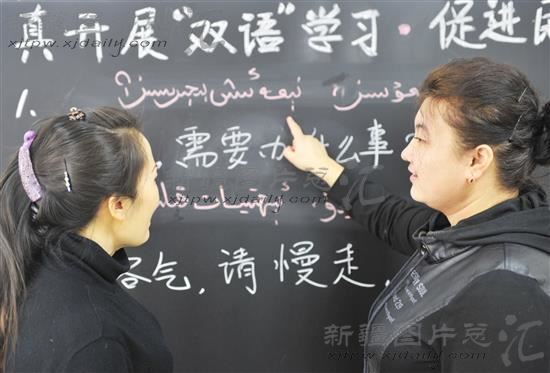 xjtpw.xjdaily.com 汇
真开展“双语”学习·促进民
1. نېمە ئىشى بېجىرىسىز؟
，需要办什么事？
ئېھتىيات
客气，请慢走，
新疆图片总汇
xjtpw.xjdaily.com